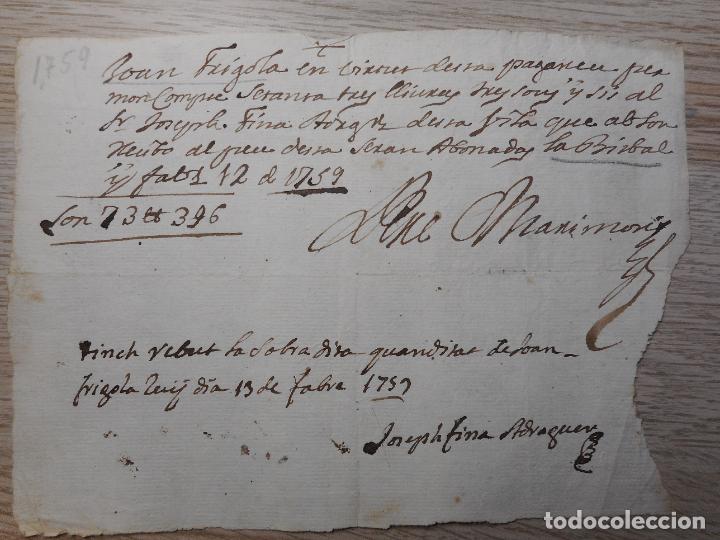 1759
Joan Frigola en virtut desta pagareu per
mon Compte Setanta tres lliuras tres sous y sis al
Sr. Joseph Fina Adroguer desta Vila que ab son
Rebut al peu desta seran Abonadas la Bisbal
y fabr 12 de 1759
Son 73 tt 3 s 6
Pere Marimon
Tinch rebut la sobra dita quanditat de Joan
frigola Vuÿ dia 13 de fabre 1759
Joseph Fina Adraguer
todocoleccion
todocoleccion.net